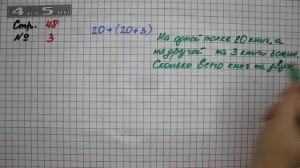 4ALL5.RU
Стр. 48
№ 3
20+(20+3)
На одной полке 20 книг, а
на другой на 3 книги больше.
Сколько всего книг на двух